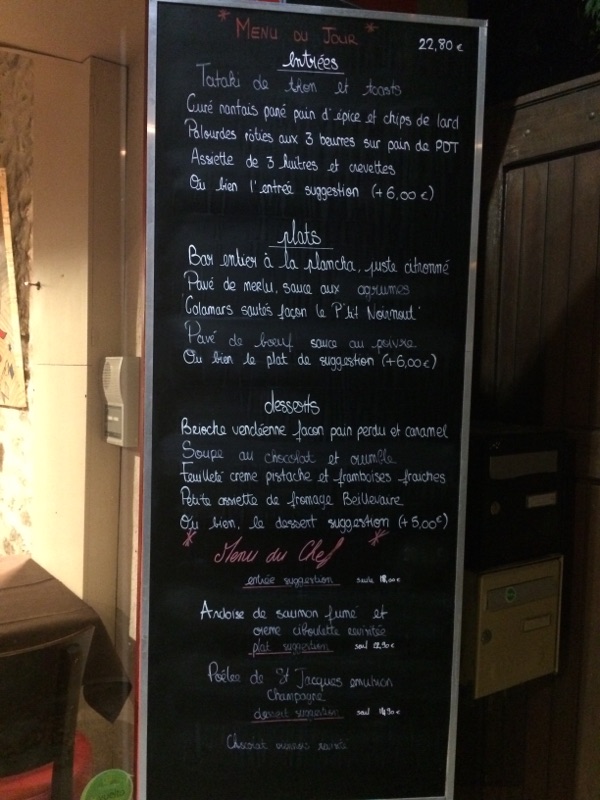 * Menu du Jour *
22,80 €
entrées
Tataki de thon et toasts
Curé nantais pané pain d'épice et chips de lard
Palourdes rôties aux 3 beurres sur pain de PDT
Assiette de 3 huîtres et crevettes
Ou bien l'entrée suggestion (+6,00 €)
plats
Bar entier à la plancha, juste citronné
Pavé de merlu, sauce aux agrumes
Calamars sautés façon le P'tit Noirmout'
Pavé de boeuf sauce au poivre
Ou bien le plat de suggestion (+6,00 €)
desserts
Brioche vendéenne façon pain perdu et caramel
Soupe au chocolat et crumble
Feuilleté creme pistache et framboises fraiches
Petite assiette de fromage Beillevaire
Ou bien, le dessert suggestion (+5,00€)
* Menu du Chef *
entrée suggestion seule
Ardoise de saumon fumé et
creme ciboulette revisitée
plat suggestion seul
Poêlée de St Jacques emulsion
Champagne
dessert suggestion seul
Chocolat